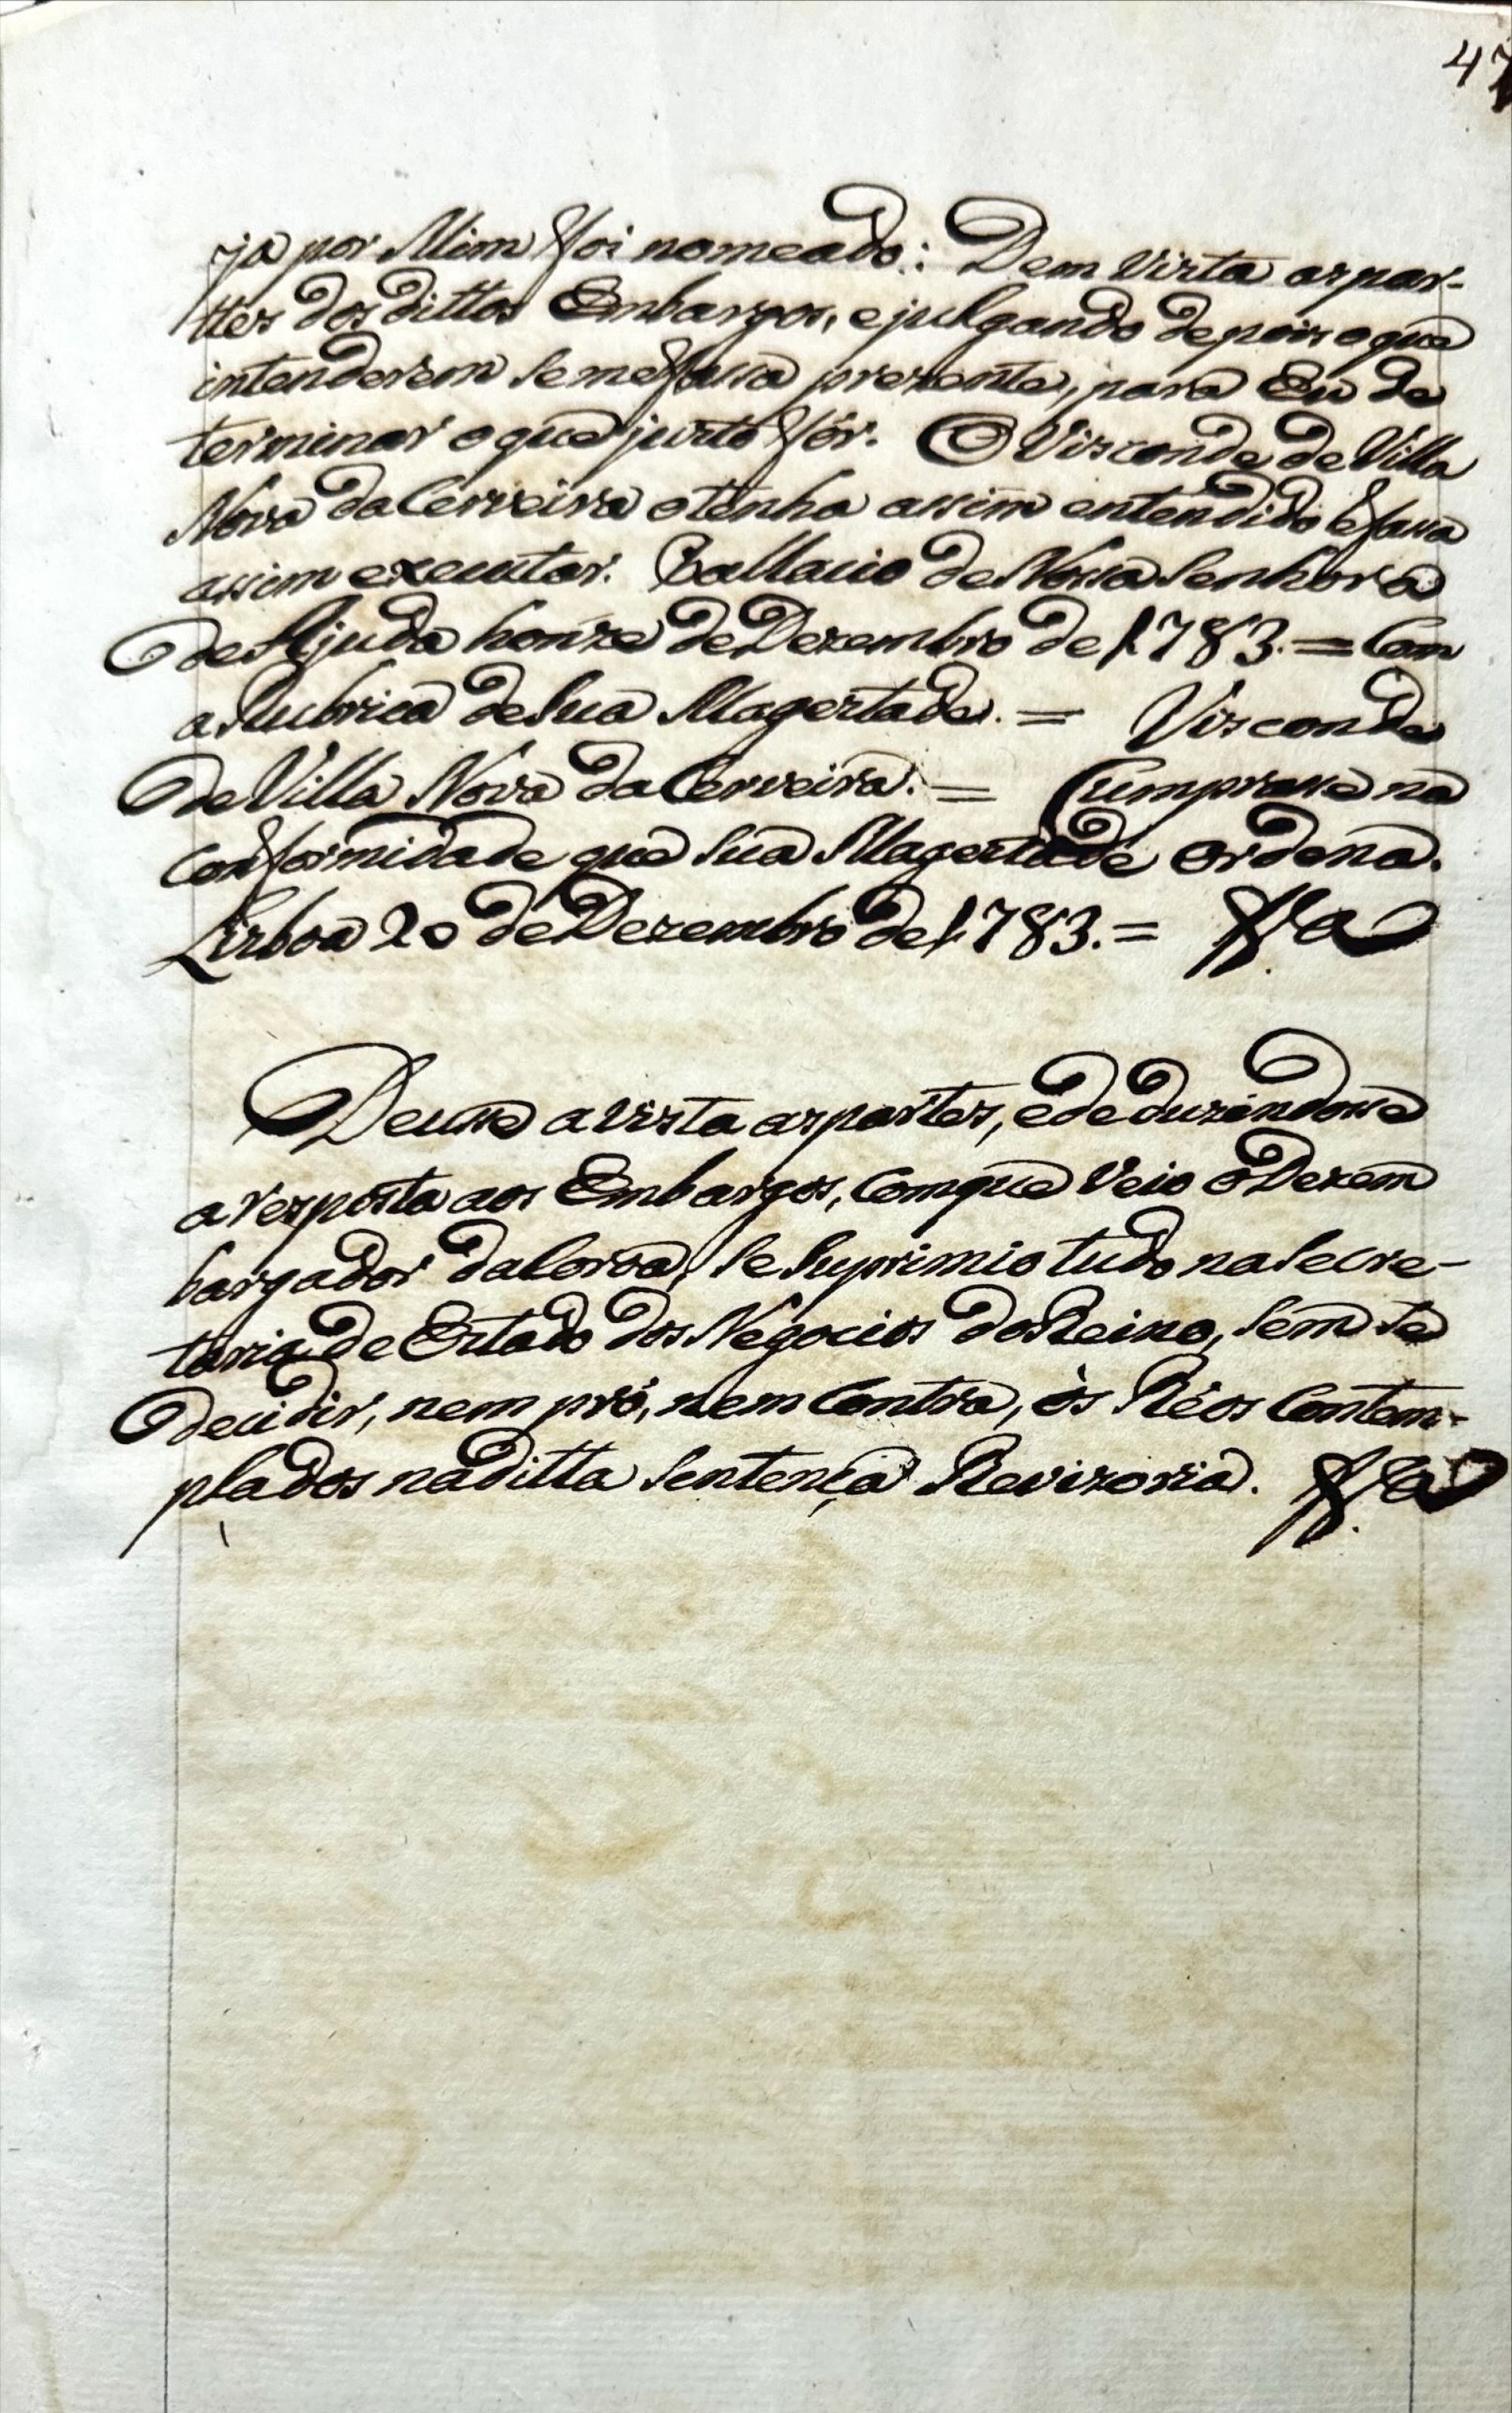 47
ja por Mim foi nomeado: Dem Vista as par-
ttes dos dittos Embargos, e julgando depois o que
intenderem se me fassa prezente, para Eu de
terminar o que justo fôr. O Visconde de Villa
Nova da Cerveira o tenha assim entendido e fassa
assim executar. Pallacio de Nossa Senhora
de Ajuda honze de Dezembro de 1783. = Com
a Rubrica de Sua Magestade. = Visconde
de Villa Nova da Cerveira. = Cumprasse na
conformidade que Sua Magestade ordena.
Lisboa 20 de Dezembro de 1783. =
Deusse a vista as partes, e deduzindosse
a resposta aos Embargos, com que veio o Dezem
bargador da Coroa, se suprimio tudo na Secre-
taria de Estado dos Negocios do Reino, sem se
decidir, nem pró, nem contra, ôs Réos contem-
plados na ditta Sentença Revizoria.